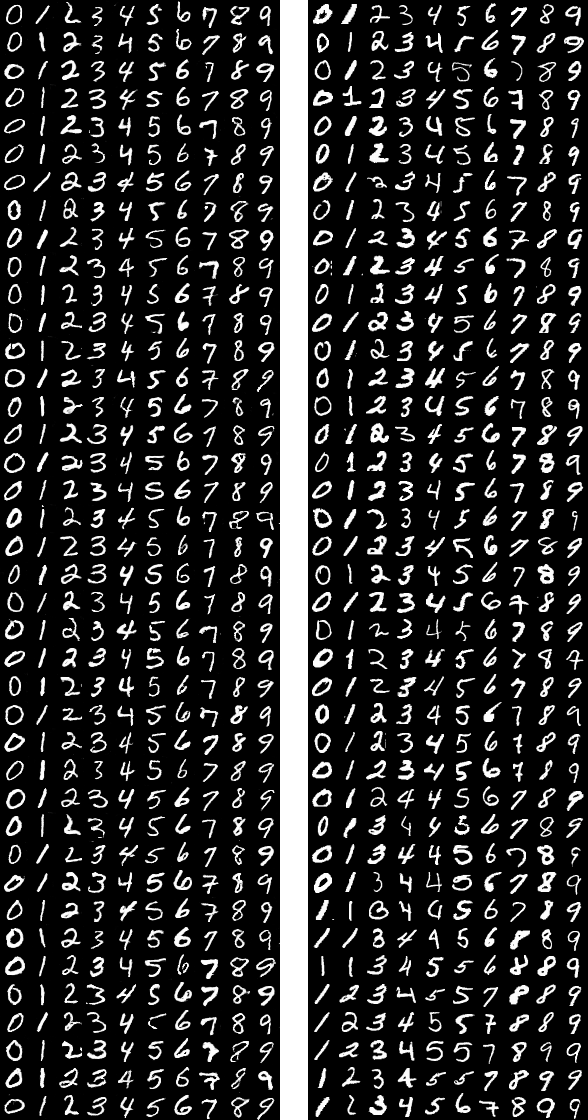 0 1 2 3 4 5 6 7 8 9
0 1 2 3 4 5 6 7 8 9
0 1 2 3 4 5 6 7 8 9
0 1 2 3 4 5 6 7 8 9
0 1 2 3 4 5 6 7 8 9
0 1 2 3 4 5 6 7 8 9
0 1 2 3 4 5 6 7 8 9
0 1 2 3 4 5 6 7 8 9
0 1 2 3 4 5 6 7 8 9
0 1 2 3 4 5 6 7 8 9
0 1 2 3 4 5 6 7 8 9
0 1 2 3 4 5 6 7 8 9
0 1 2 3 4 5 6 7 8 9
0 1 2 3 4 5 6 7 8 9
0 1 2 3 4 5 6 7 8 9
0 1 2 3 4 5 6 7 8 9
0 1 2 3 4 5 6 7 8 9
0 1 2 3 4 5 6 7 8 9
0 1 2 3 4 5 6 7 8 9
0 1 2 3 4 5 6 7 8 9
0 1 2 3 4 5 6 7 8 9
0 1 2 3 4 5 6 7 8 9
0 1 2 3 4 5 6 7 8 9
0 1 2 3 4 5 6 7 8 9
0 1 2 3 4 5 6 7 8 9
0 1 2 3 4 5 6 7 8 9
0 1 2 3 4 5 6 7 8 9
0 1 2 3 4 5 6 7 8 9
0 1 2 3 4 5 6 7 8 9
0 1 2 3 4 5 6 7 8 9
0 1 2 3 4 5 6 7 8 9
0 1 2 3 4 5 6 7 8 9
0 1 2 3 4 5 6 7 8 9
0 1 2 3 4 5 6 7 8 9
0 1 2 3 4 5 6 7 8 9
0 1 2 3 4 5 6 7 8 9
0 1 2 3 4 5 6 7 8 9
0 1 2 3 4 5 6 7 8 9
0 1 2 3 4 5 6 7 8 9
0 1 2 3 4 5 6 7 8 9
0 1 2 3 4 5 6 7 8 9
0 1 2 3 4 5 6 7 8 9
0 1 2 3 4 5 6 7 8 9
0 1 2 3 4 5 6 7 8 9
0 1 2 3 4 5 6 7 8 9
0 1 2 3 4 5 6 7 8 9
0 1 2 3 4 5 6 7 8 9
0 1 2 3 4 5 6 7 8 9
0 1 2 3 4 5 6 7 8 9
0 1 2 3 4 5 6 7 8 9
0 1 2 3 4 5 6 7 8 9
0 1 2 3 4 5 6 7 8 9
0 1 2 3 4 5 6 7 8 9
0 1 2 3 4 5 6 7 8 9
0 1 2 3 4 5 6 7 8 9
0 1 2 3 4 5 6 7 8 9
0 1 2 3 4 5 6 7 8 9
0 1 2 3 4 5 6 7 8 9
0 1 2 3 4 5 6 7 8 9
0 1 2 3 4 5 6 7 8 9
0 1 2 3 4 5 6 7 8 9
0 1 2 3 4 5 6 7 8 9
0 1 2 3 4 5 6 7 8 9
0 1 2 3 4 5 6 7 8 9
0 1 2 3 4 5 6 7 8 9
0 1 2 3 4 5 6 7 8 9
0 1 2 3 4 5 6 7 8 9
0 1 2 3 4 5 6 7 8 9
0 1 2 4 4 5 6 7 8 9
0 1 3 4 4 3 6 7 8 9
0 1 3 4 4 5 6 7 8 9
0 1 3 4 4 5 6 7 8 9
1 1 3 4 4 5 6 7 8 9
1 1 3 4 4 5 6 8 8 9
1 1 3 4 5 5 6 8 8 9
1 2 3 4 5 5 7 8 8 9
1 2 3 4 5 5 7 8 8 9
1 2 3 4 5 5 7 8 9 9
1 2 3 4 5 5 7 8 9 9
1 2 3 4 5 6 7 8 9 9